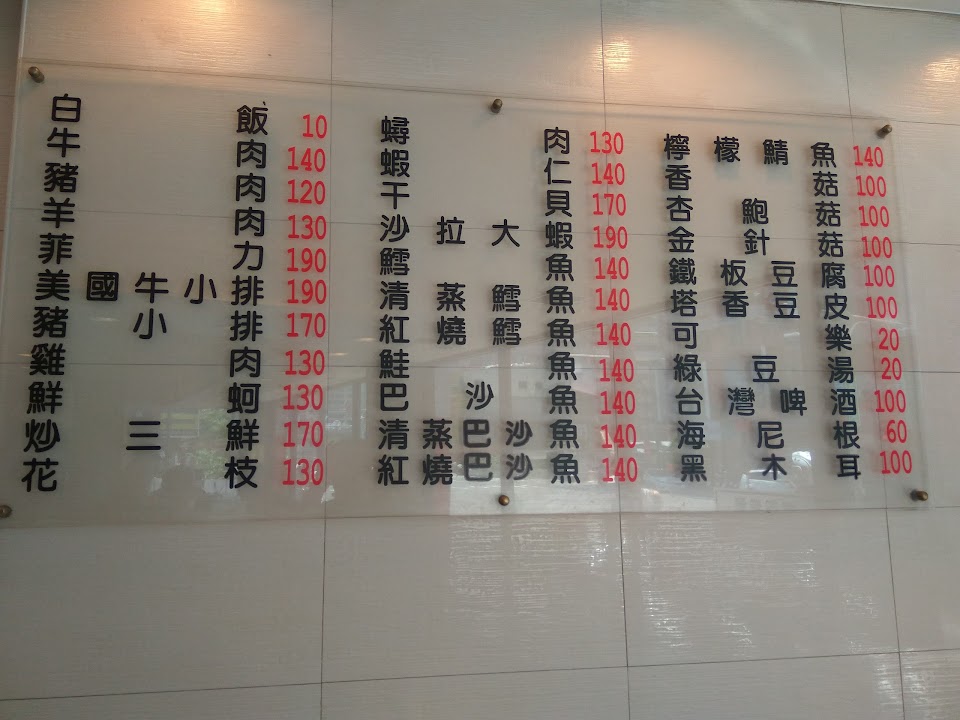 白飯 10
牛肉 140
豬肉 120
羊肉 130
菲力 190
美國牛小排 190
豬小排 170
雞肉 130
鮮蚵 130
炒三鮮 170
花枝 130
蟳肉 130
蝦仁 140
干貝 170
沙拉大蝦 190
鱈魚 140
清蒸鱈魚 140
紅燒鱈魚 140
鮭魚 140
巴沙魚 140
清蒸巴沙魚 140
紅燒巴沙魚 140
檸檬鯖魚 140
香菇 100
杏鮑菇 100
金針菇 100
鐵板豆腐 100
塔香豆皮 100
可樂 20
綠豆湯 20
台灣啤酒 100
海尼根 60
黑木耳 100